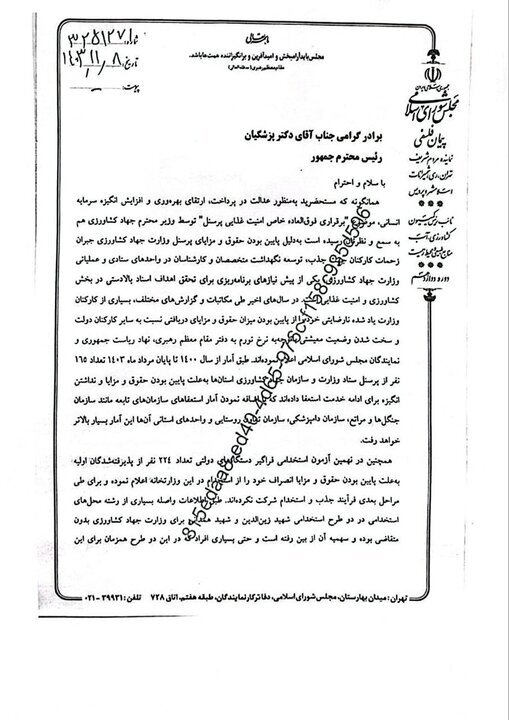 باسمه تعالی
مجلس باید آرامبخش و امیدآفرین و برانگیزاننده همت‌ها باشد.
مقام معظم رهبری (مدظله العالی)
شماره: ۳۲۵۱۲۷
تاریخ: ۱۴۰۳/۱۱/۸
پیوست:
جمهوری اسلامی ایران
مجلس شورای اسلامی
پیمان فلسفی
نماینده مردم شریف
تهران، ری، شمیرانات
اسلامشهر و پردیس
نائب رئیس کمیسیون
کشاورزی، آب
منابع طبیعی و محیط زیست
دوره دوازدهم
برادر گرامی جناب آقای دکتر پزشکیان
رئیس محترم جمهور
با سلام و احترام
همانگونه که مستحضرید به‌منظور عدالت در پرداخت، ارتقای بهره‌وری و افزایش انگیزه سرمایه
انسانی، موضوع "برقراری فوق‌العاده خاص امنیت غذایی پرسنل" توسط وزیر محترم جهاد کشاورزی هم
به سمع و نظرتان رسیده است به‌دلیل پایین بودن حقوق و مزایای پرسنل وزارت جهاد کشاورزی جبران
زحمات کارکنان جهاد، جذب، توسعه نگهداشت متخصصان و کارشناسان در واحدهای ستادی و عملیاتی
وزارت جهاد کشاورزی، یکی از پیش نیازهای برنامه‌ریزی برای تحقق اهداف اسناد بالادستی در بخش
کشاورزی و امنیت غذایی است. در سال‌های اخیر طی مکاتبات و گزارش‌های مختلف، بسیاری از کارکنان
وزارت یاد شده نارضایتی خود را از پایین بودن میزان حقوق و مزایای دریافتی نسبت به سایر کارکنان دولت
و سخت شدن وضعیت معیشتی باتوجه به نرخ تورم به دفتر مقام معظم رهبری، نهاد ریاست جمهوری و
نمایندگان مجلس شورای اسلامی اعلام نموده‌اند. طبق آمار از سال ۱۴۰۰ تا پایان مرداد ماه ۱۴۰۳ تعداد ۱۶۵
نفر از پرسنل ستاد وزارت و سازمان جهاد کشاورزی استان‌ها به‌علت پایین بودن حقوق و مزایا و نداشتن
انگیزه برای ادامه خدمت استعفا داده‌اند که با اضافه نمودن آمار استعفاهای سازمان‌های تابعه مانند سازمان
جنگل‌ها و مراتع، سازمان دامپزشکی، سازمان تعاون روستایی و واحدهای استانی آن‌ها این آمار بسیار بالاتر
خواهد رفت.
همچنین در نهمین آزمون استخدامی فراگیر دستگاه‌های دولتی تعداد ۲۲۴ نفر از پذیرفته‌شدگان اولیه
به‌علت پایین بودن حقوق و مزایا انصراف خود را از استخدام در این وزارتخانه اعلام نموده و برای طی
مراحل بعدی فرآیند جذب و استخدام شرکت نکرده‌اند. طبق اطلاعات واصله بسیاری از رشته محل‌های
استخدامی در دو طرح استخدامی شهید زین‌الدین و شهید همدانی برای وزارت جهاد کشاورزی بدون
متقاضی بوده و سهمیه آن از بین رفته است و حتی بسیاری افراد که در این دو طرح همزمان برای این
تهران: میدان بهارستان، مجلس شورای اسلامی، دفاتر کار نمایندگان، طبقه هفتم، اتاق ۷۲۸ تلفن: ۳۹۹۳۱-۰۲۱